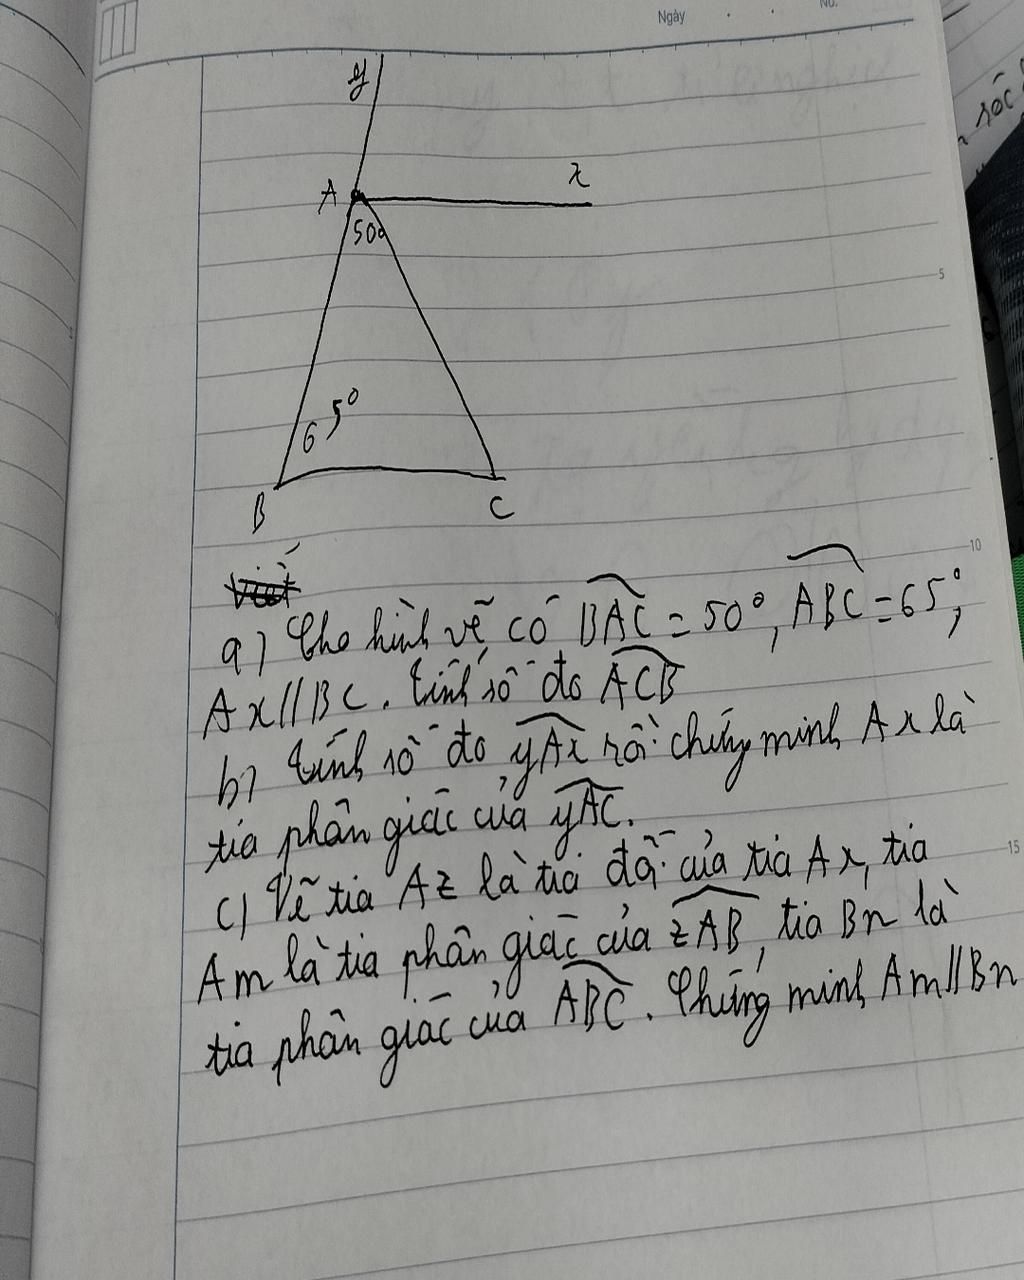 Ngày
No.
y
A
x
50°
5
65°
B
C
10
a) Cho hình vẽ, có BAC = 50°, ABC = 65°;
Ax // BC. tính số đo ACB
b) tính số đo yAx rồi chứng minh Ax là
tia phân giác của yAC.
15
c) Vẽ tia Az là tia đối của tia Ax, tia
Am là tia phân giác của zAB, tia Bn là
tia phân giác của ABC. Chứng minh Am // Bn